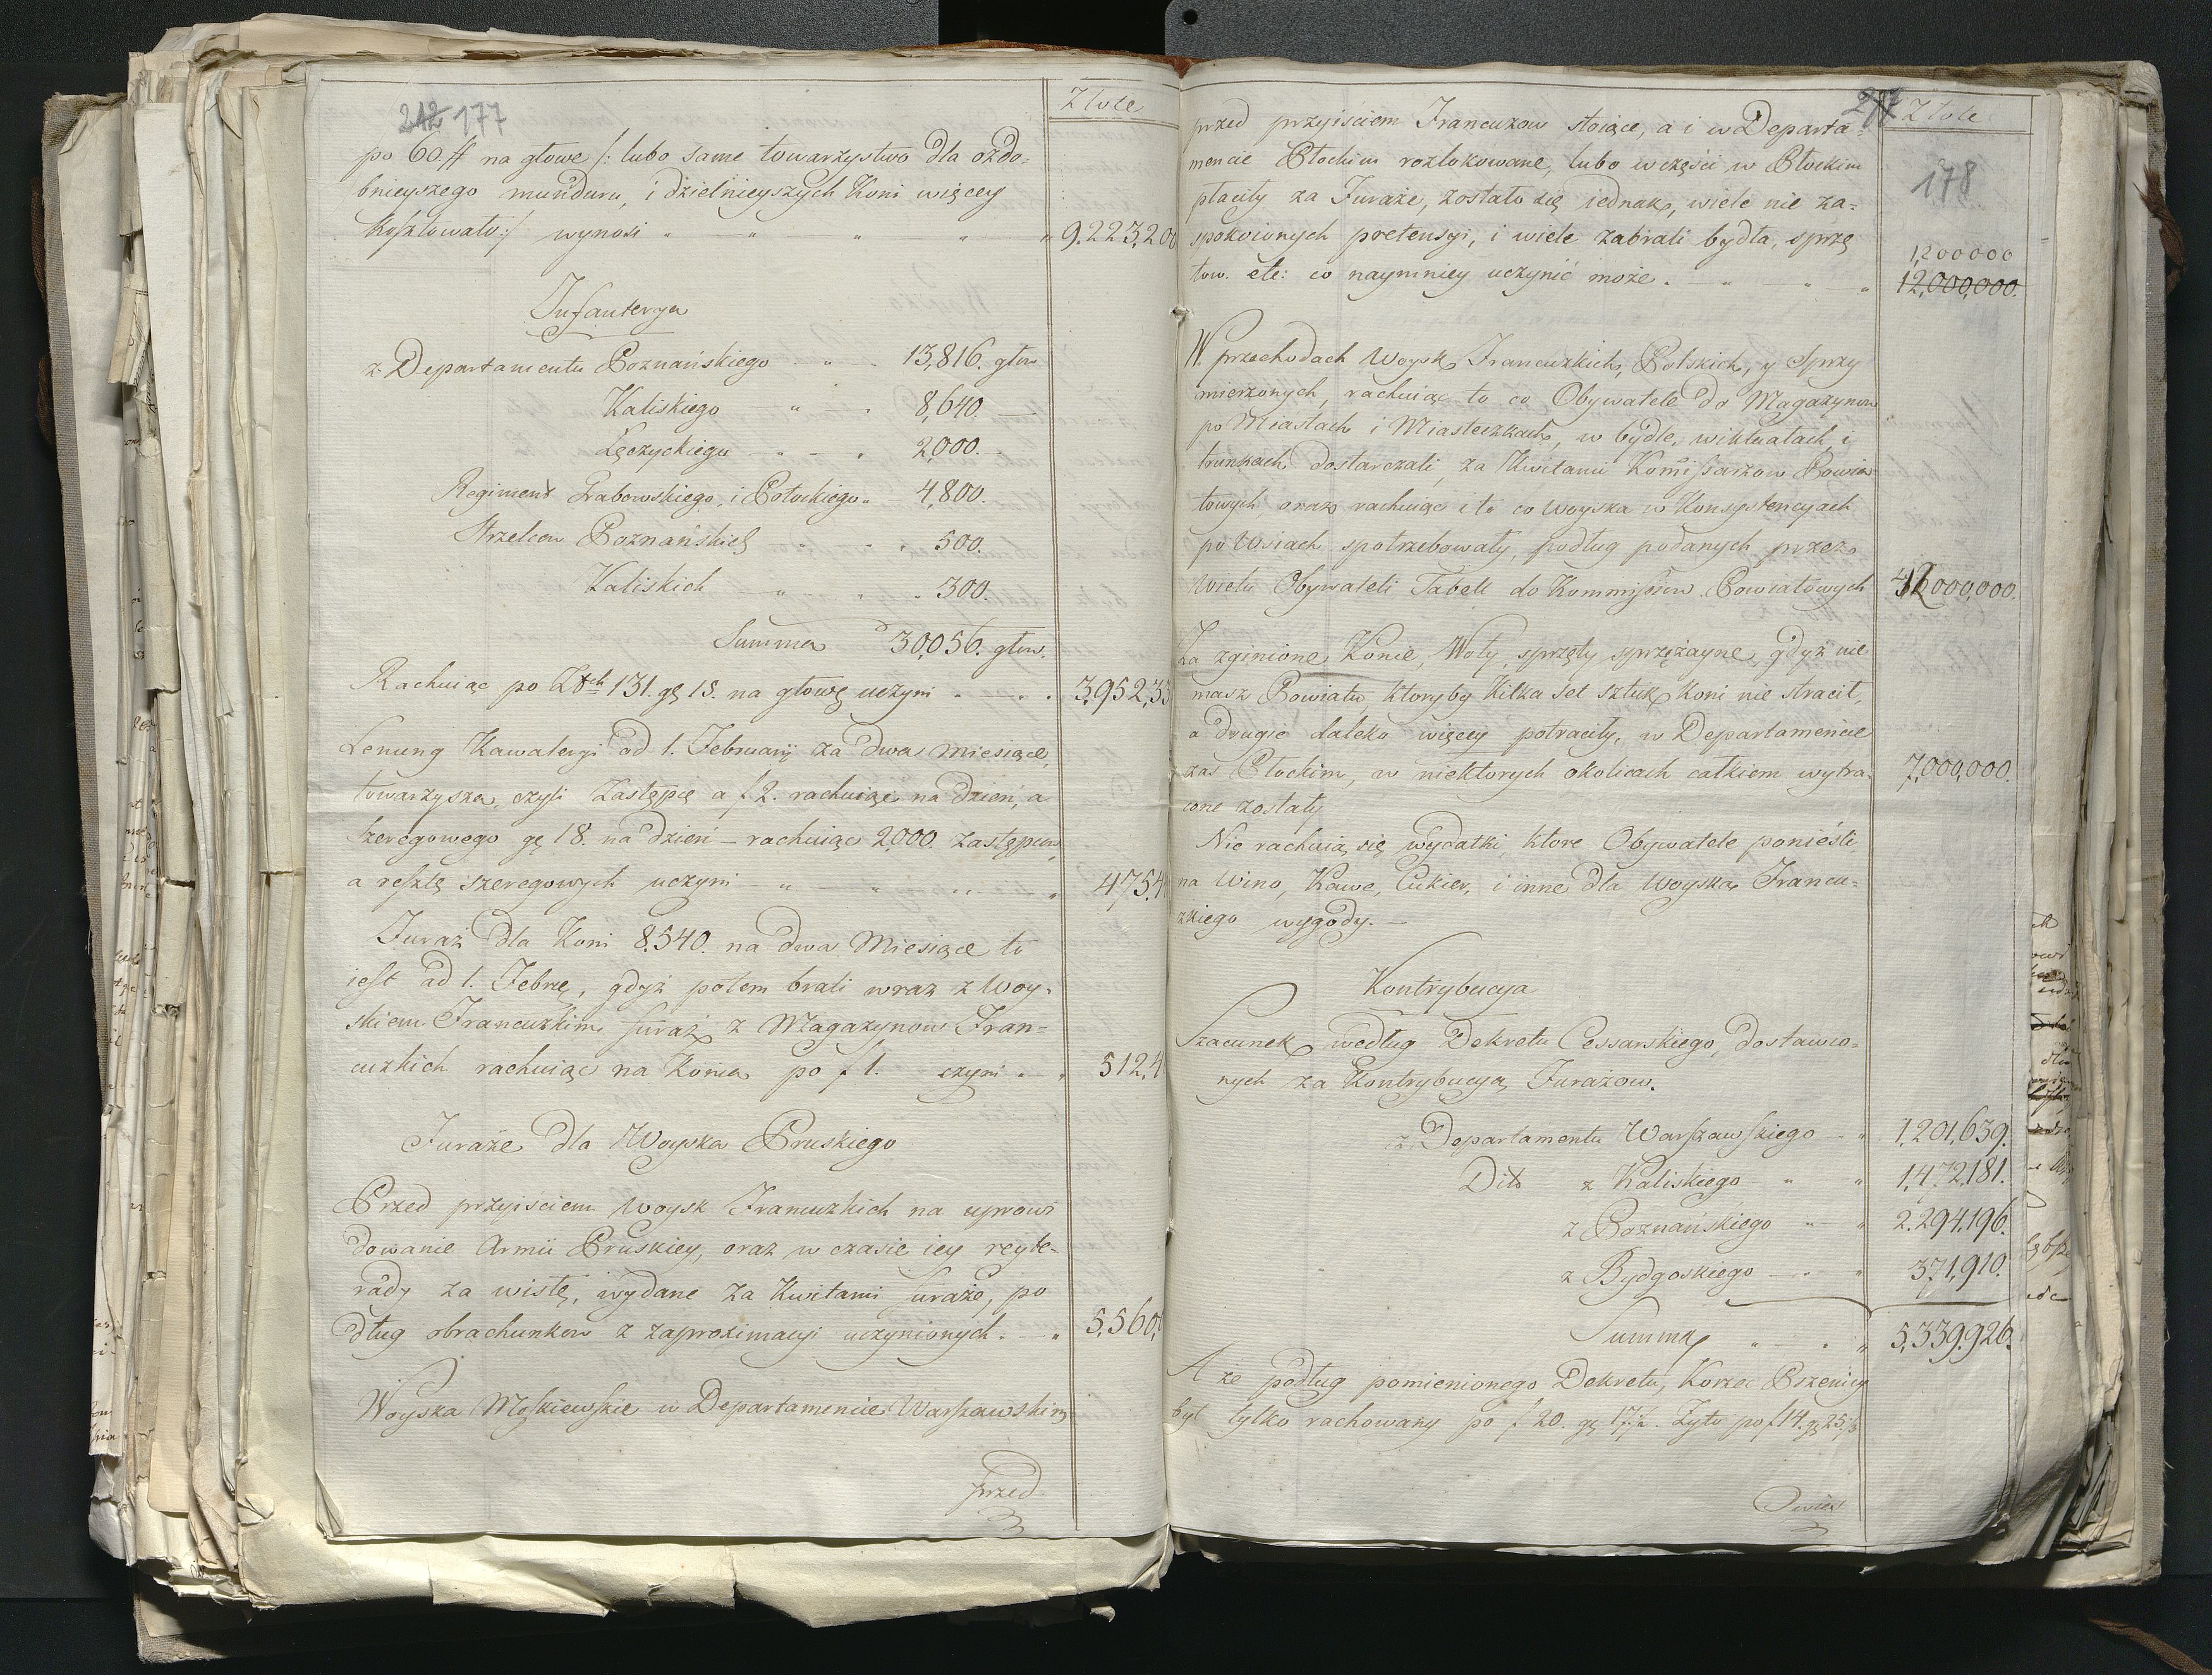 212 177
Złote
po 60 ff na głowę /: lubo same towarzystwo dla ozdo-
bnieyszego munduru, i dzielnieyszych Koni więcey
kosztowało :/ wynosi " — " " " " 9.223,200
Infanterya
z Departamentu Poznańskiego " - 13,816. głow
Kaliskiego " - . 8,640. —
Łęczyckiego — " - . 2,000. —
Regiment Grabowskiego, i Potockiego " 4,800.
Strzelcow Poznańskich " . . 500.
Kaliskich — " " . 300.
Summa 30,056. głow.
Rachuiąc po Złch 131. gę 15. na głowę uczyni . — . . 3,952,3
Lenung Kawaleryi od 1. Februarij za dwa miesiące,
towarzysza, czyli Zastępcę a f 2. rachuiąc na dzień, a
szeregowego gę 18. na dzień — rachuiąc 2,000. Zastępcow,
a resztę szeregowych uczyni " — " " " 475,4
Furaż dla Koni 8.540. na dwa Miesiące to
iest od 1. Febrę, gdyż potem brali wraz z Woy-
skiem Francuzkim furaż z Magazynow Fran-
cuzkich rachuiąc na Konia po f 1. czyni . " 512,4
Furaże dla Woyska Pruskiego
Przed przyiściem Woysk Francuzkich na uprowi
dowanie Armii Pruskiey, oraz w czasie iey reyte-
rady za wisłę, wydane za Kwitami furaże, po
dług obrachunkow z zaproximacyi uczynionych . — " 5,560,
Woyska Moskiewskie w Departamencie Warszawskim
przed
Złote
178
przed przyiściem Francuzow stoiące, a i w Departa-
mencie Płockim rozlokowane, lubo w części w Płockim
płaciły za Furaże, zostało się iednak, wiele nie za-
spokoionych pretensyi, i wiele zabrali bydła, sprzę
1,200000
tow. etc: co naymniey uczynić może . — " — " — " 12,000,000.
W przechodach Woysk Francuzkich, Polskich, y Sprzy
mierzonych, rachuiąc to co Obywatele do Magazynow
po Miastach i Miasteczkach, w bydle, wiktuałach i
trunkach dostarczali, za Kwitami Kommissarzow Powia
towych, oraz rachuiąc i to co woyska w Konsystencyach
po Wsiach spotrzebowały, podług podanych przez
wielu Obywateli Tabell do Kommissiow Powiatowych 42,000,000.
Za zginione Konie, Woły, sprzęty sprzężayne, gdyż nie
masz Powiatu ktoryby Kilka set sztuk Koni nie stracił,
a drugie daleko więcey potraciły, w Departamencie
zaś Płockim, w niektorych okolicach całkiem wytra- 7,000,000.
cone zostały
Nie rachuią się wydatki, ktore Obywatele ponieśli
na Wino, Kawe, Cukier, i inne dla Woyska Francu-
zkiego wygody. —
Kontrybucya
Szacunek według Dekretu Cessarskiego, dostawio-
nych za Kontrybucyą Furażow.
z Departamentu Warszawskiego — " 1,201,639.
Dito z Kaliskiego — " " 1,472,181.
z Poznańskiego " — " 2.294,196.
z Bydgoskiego — . " 371,910.
Summa " — . " 5,339.926.
A że podług pomienionego Dekretu, Korzec Pszenicy
był tylko rachowany po f 20. gę 17½. Żyto po f 14. gę 25
Owies